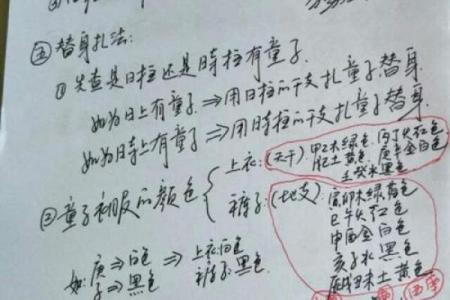 ⑤替身扎法:
①先查是日柱还是时柱有童子
如为日上有童子⇒用日柱的干支扎童子替身
如为时上有童子⇒用时柱的干支扎童子替身.
②童子衣服的颜色
上衣:(天干).甲乙木绿色.丙丁火红色
戊己土黄色.庚辛金白色
壬癸水黑色
裤子:(地支)
寅卯木绿青色
巳午火红色
申酉金白色
亥子水黑色
辰戌丑未土黄色
如:庚⇒白色
子⇒黑色
⇒上衣白色
裤子黑色.